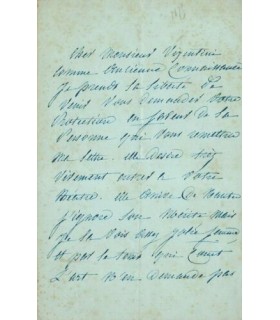 Cher Monsieur Vizentini
comme Ancienne Connaissance
je prends la liberté de
venir vous demander votre
Protection en faveur de la
Personne qui vous remettra
ma lettre. elle desire
vivement entrer à votre
théâtre. elle
j'ignore son mérite mais
je la vois assez jolie femme
et pas la seule qui
L'art n'en demande pas